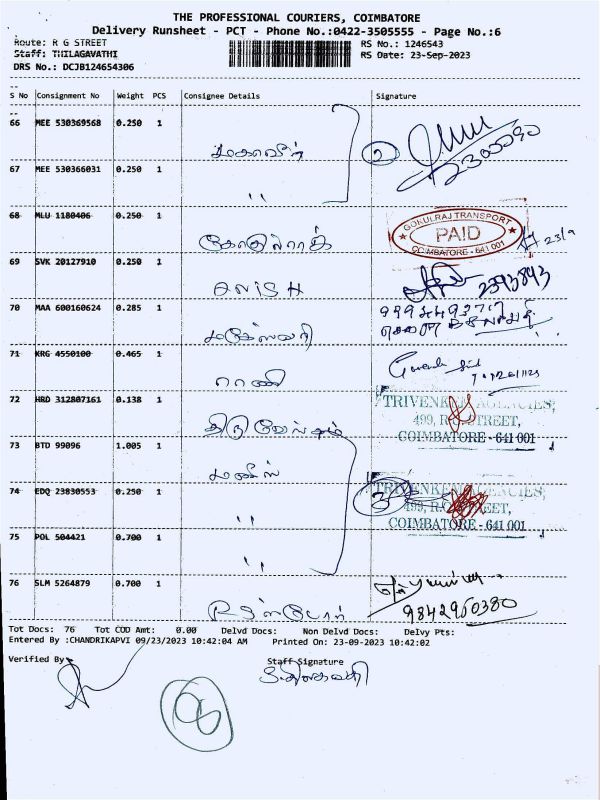 THE PROFESSIONAL COURIERS, COIMBATORE
Delivery Runsheet - PCT - Phone No.:0422-3505555 - Page No.:6
Route: R G STREET
RS No.: 1246543
Staff: THILAGAVATHI
RS Date: 23-Sep-2023
DRS No.: DCJB124654306
S No Consignment No Weight PCS Consignee Details Signature
66 MEE 530369568 0.250 1
மகாவீர்
67 MEE 530366031 0.250 1
,,
68 MLU 1180406 0.250 1
GOKULRAJ TRANSPORT
PAID
COIMBATORE - 641 001
23/9
கோகுல்ராஜ்
69 SVK 20127910 0.250 1
ANISH
70 MAA 600160624 0.285 1
மகேஸ்வரி
71 KRG 4550100 0.465 1
ராணி
72 HRD 312807161 0.138 1
TRIVENKEM AGENCIES,
499, R.G. STREET,
COIMBATORE - 641 001
73 BTD 99096 1.005 1
74 EDQ 23830553 0.250 1
3
TRIVENKEM AGENCIES,
499, R.G. STREET,
COIMBATORE - 641 001
,,
75 POL 504421 0.700 1
,,
76 SLM 5264879 0.700 1
9842960380
Tot Docs: 76 Tot COD Amt: 0.00 Delvd Docs: Non Delvd Docs: Delvy Pts:
Entered By :CHANDRIKAPVI 09/23/2023 10:42:04 AM Printed On: 23-09-2023 10:42:02
Verified By
Staff Signature